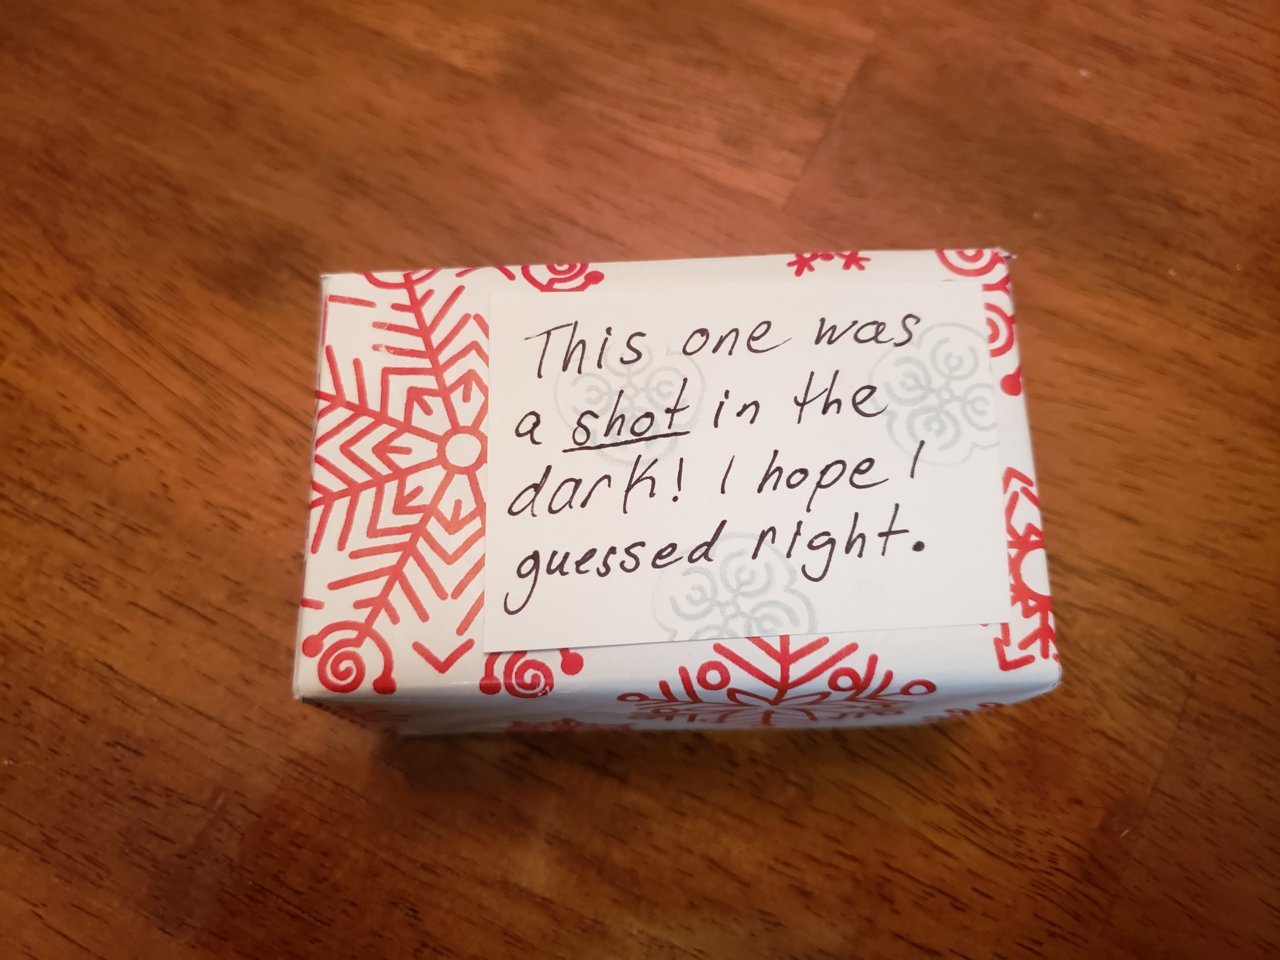 This one was
a shot in the
dark! I hope I
guessed right.